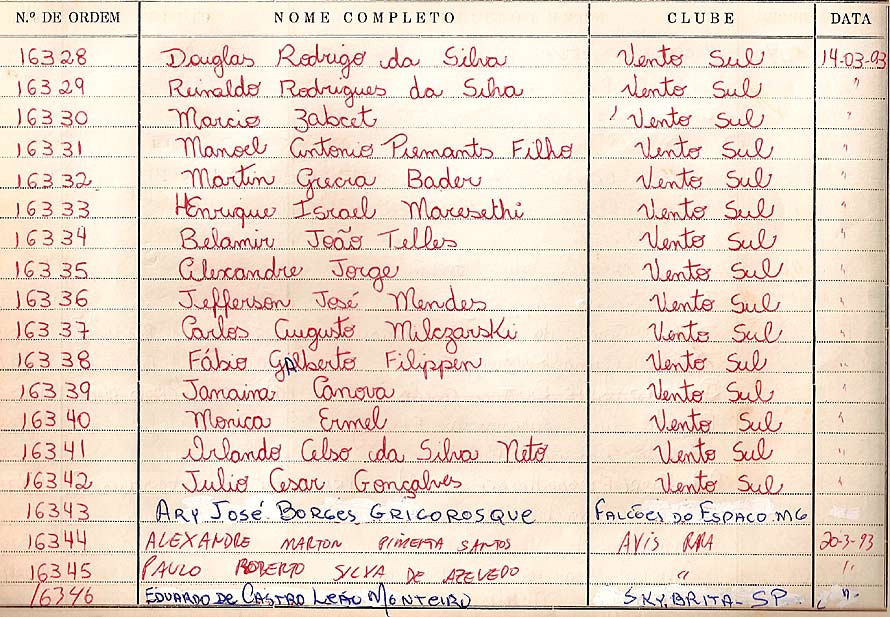 N.º DE ORDEM NOME COMPLETO CLUBE DATA
16328 Douglas Rodrigo da Silva Vento Sul 14-03-93
16329 Reinaldo Rodrigues da Silva Vento Sul "
16330 Marcio Zabcet Vento Sul "
16331 Manoel Antonio Piemants Filho Vento Sul "
16332 Martin Grecia Bader Vento Sul "
16333 Henrique Israel Maresethi Vento Sul "
16334 Belamir João Telles Vento Sul "
16335 Alexandre Jorge Vento Sul "
16336 Jefferson José Mendes Vento Sul "
16337 Carlos Augusto Milczarski Vento Sul "
16338 Fábio Galberto Filippen Vento Sul "
16339 Janaina Canova Vento Sul "
16340 Monica Ermel Vento Sul "
16341 Orlando Celso da Silva Neto Vento Sul "
16342 Julio Cesar Gonçalves Vento Sul "
16343 ARY JOSÉ BORGES GRIGOROSQUE FALCÕES DO ESPAÇO MG
16344 ALEXANDRE MARTON PIMENTA SANTOS AVIS RARA 20-3-93
16345 PAULO ROBERTO SILVA DE AZEVEDO " "
16346 EDUARDO DE CASTRO LEÃO MONTEIRO SKY BRITA - SP. "